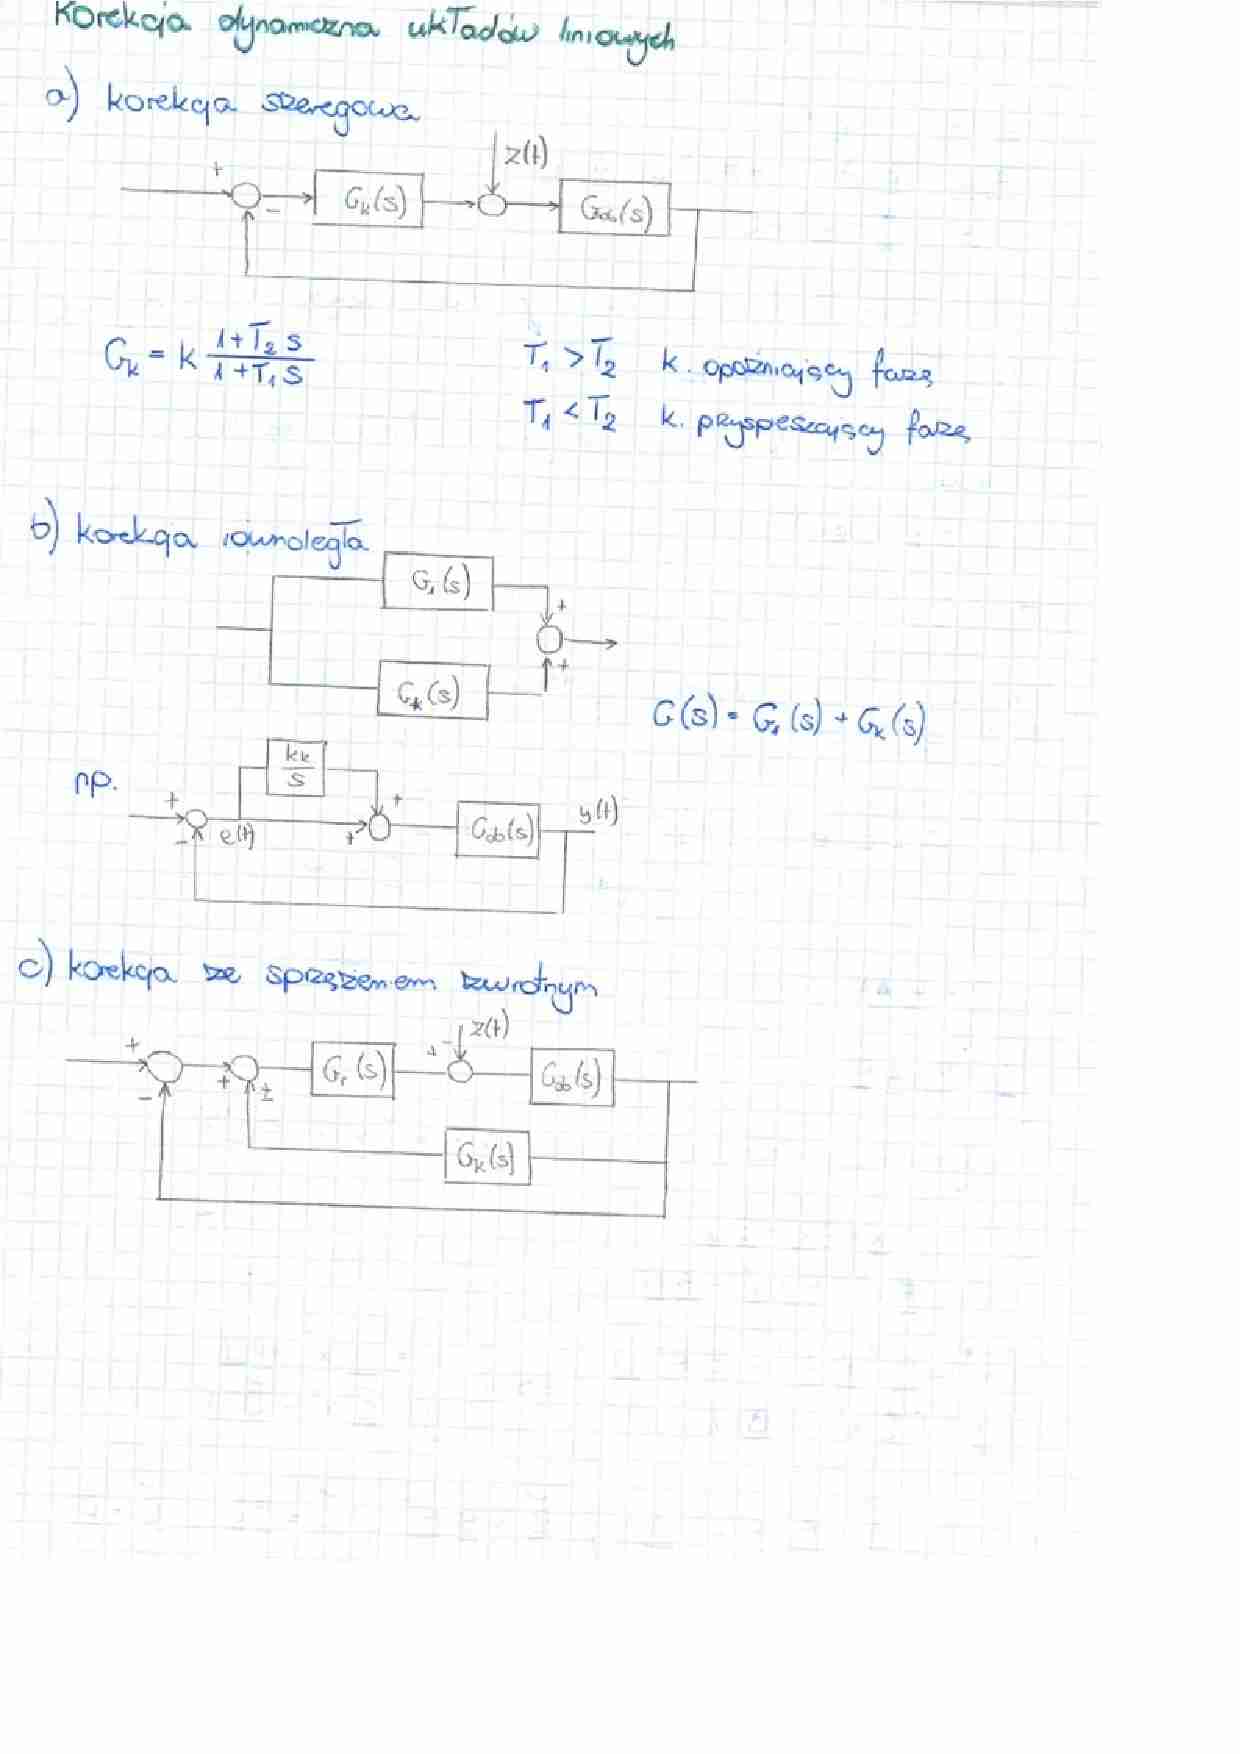 Korekcja dynamiczna układów liniowych
a) korekcja szeregowa
z(t)
+
-
Gk(s)
Gob(s)
Gk = k (1+T2 s)/(1+T1 s)
T1 > T2 k. opóźniający fazę
T1 < T2 k. przyspieszający fazę
b) korekcja równoległa
G1(s)
+
+
Gk(s)
G(s) = G1(s) + Gk(s)
np.
kk/s
+
+
-
e(t)
+
Gob(s)
y(t)
c) korekcja ze sprzężeniem zwrotnym
z(t)
+
-
+
±
Gr(s)
+
Gob(s)
Gk(s)